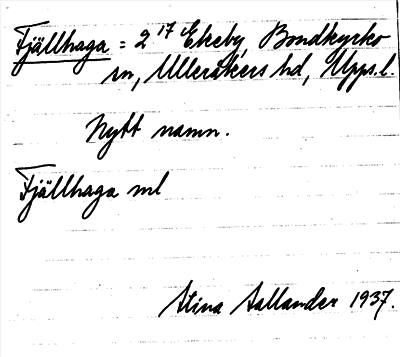 Fjällhaga = 2¹⁷ Ekeby, Bondkyrko
sn, Ulleråkers hd, Upps. l.
Nytt namn.
Fjällhaga ml
Stina Aallander 1937.